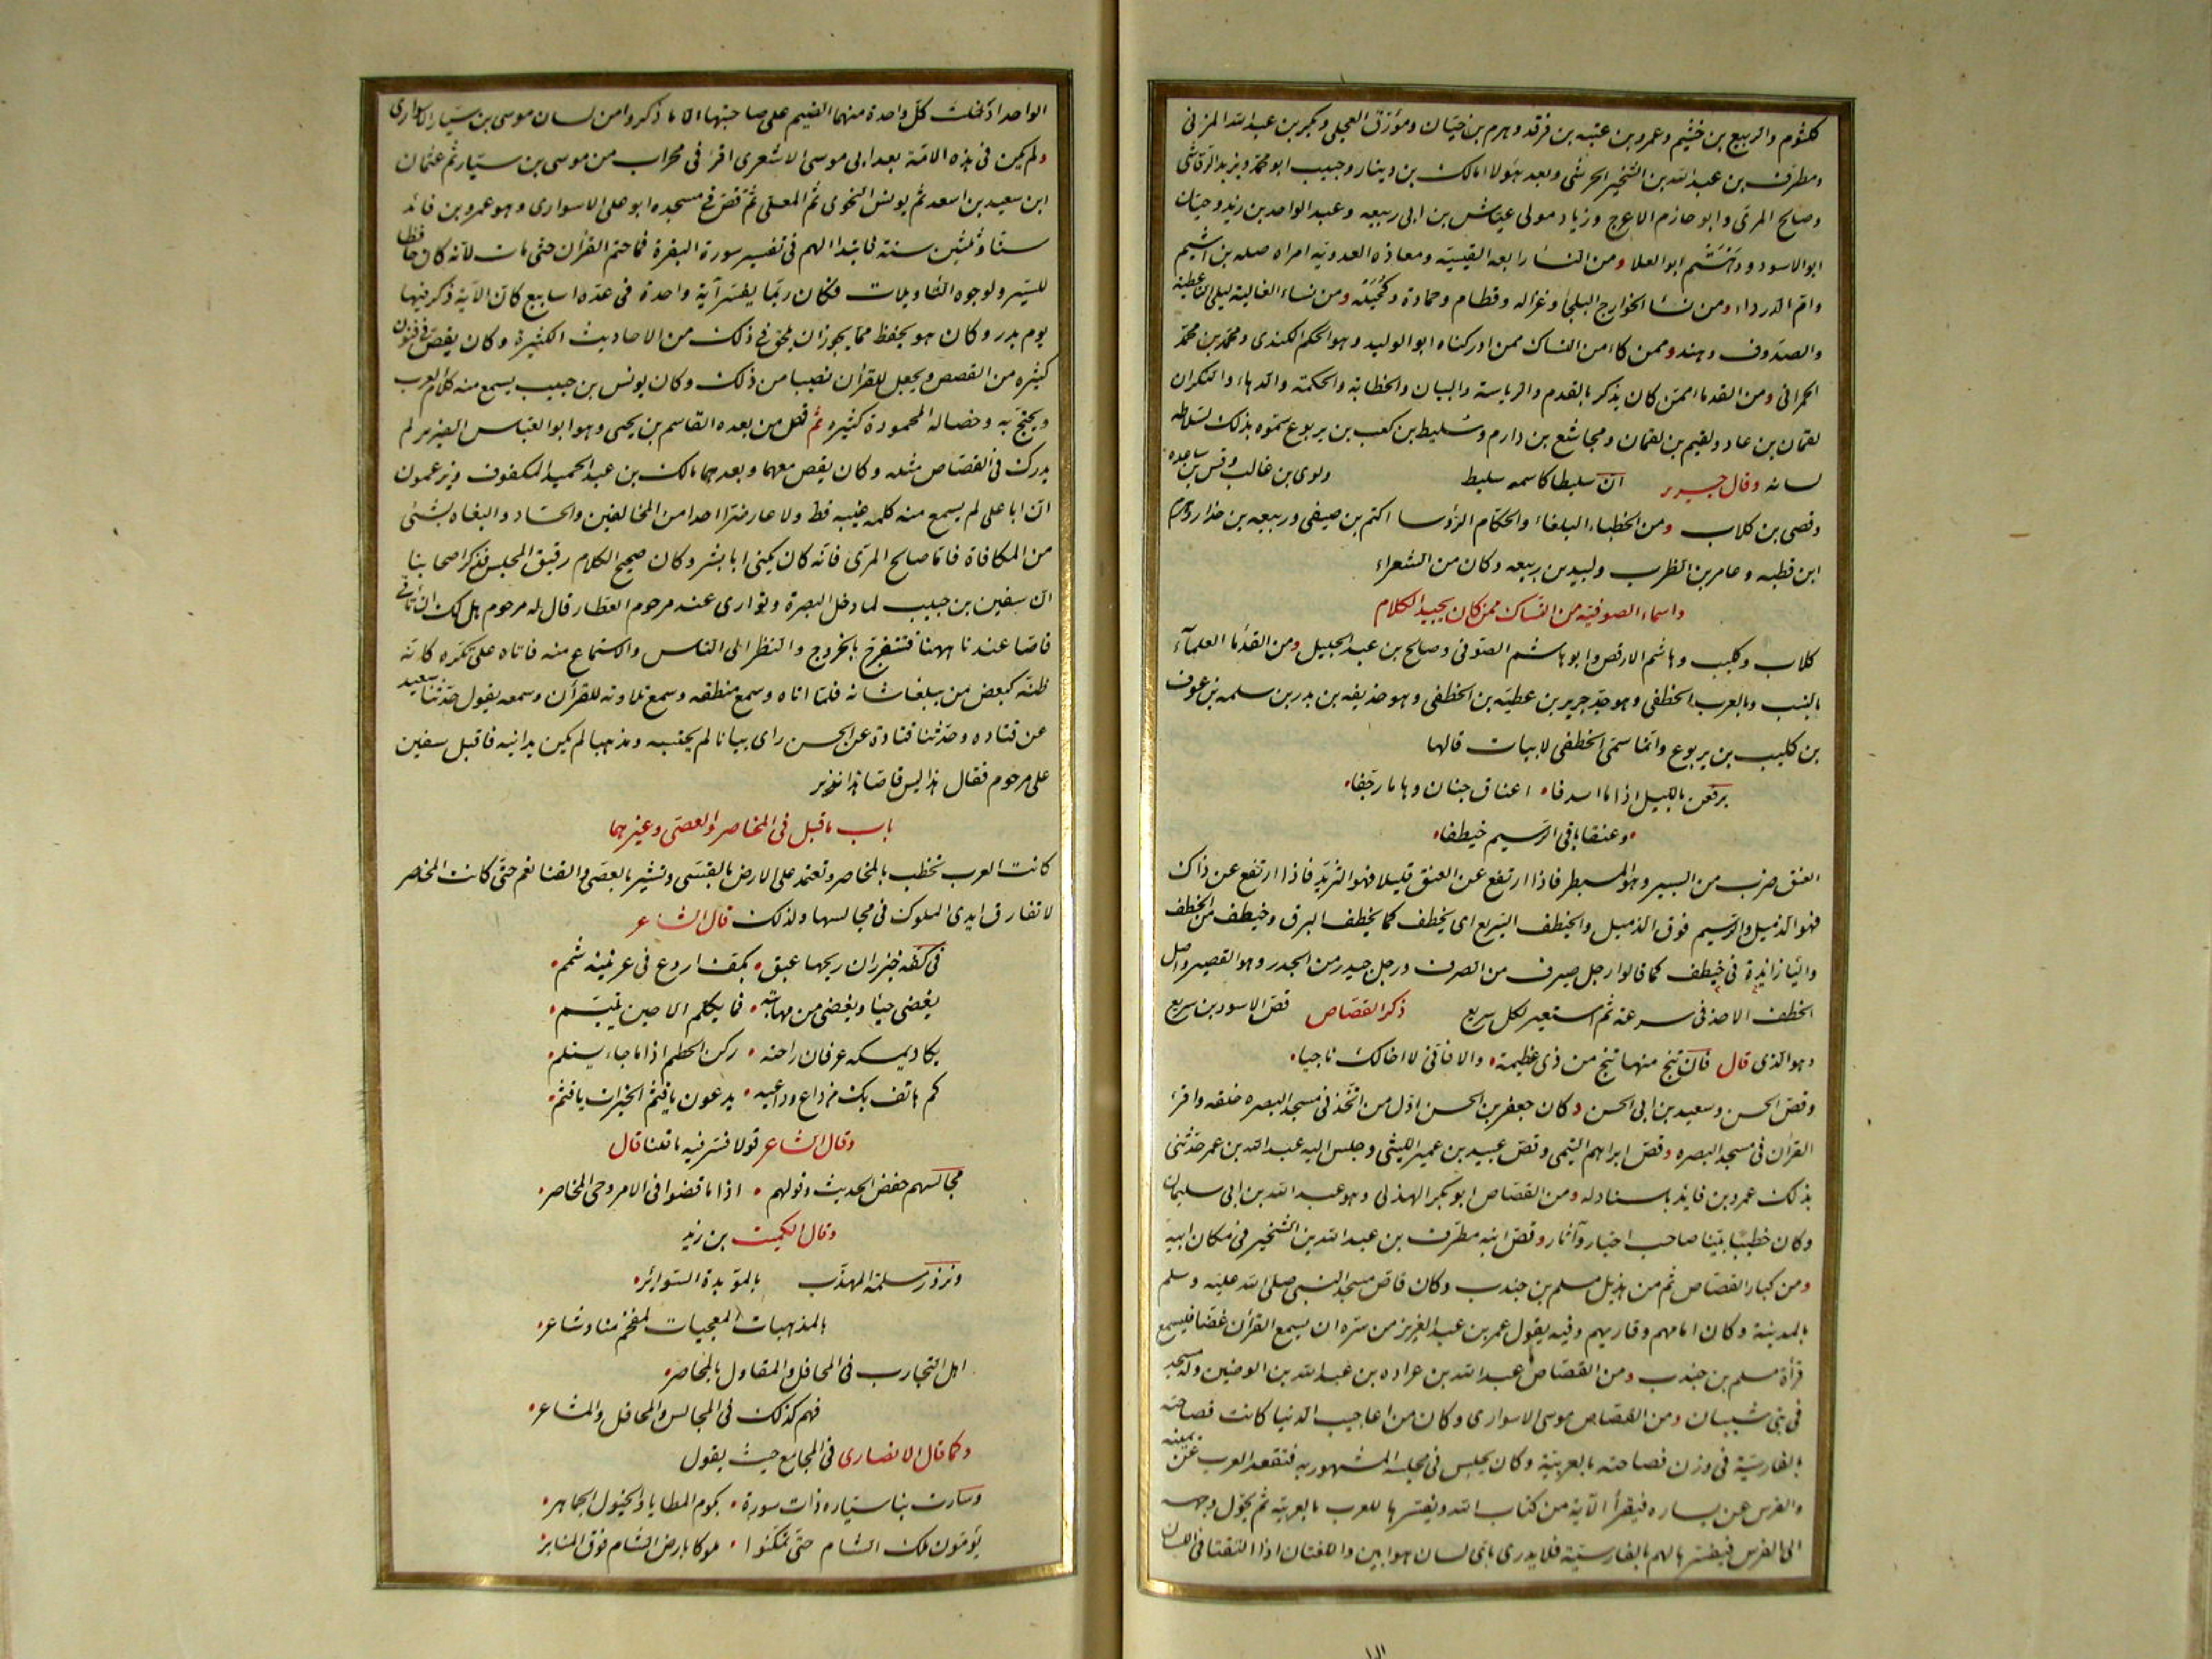 كلثوم والربيع بن خثيم وعمرو بن عتبه بن فرقد وهرم بن حيان ومورق العجلي وبكير بن عبد الله المزني
ومطرف بن عبد الله بن الشخير الحرشي وبعد هؤلاء مالك بن دينار وحبيب ابو محمد ويزيد الرقاشي
وصالح المري وابو حازم الاعرج وزياد مولى عياش بن ابي ربيعه وعبد الواحد بن زيد وحيان
ابو الاسود ودهثم ابو العلا ومن النسا رابعه القيسيه ومعاذه العدويه امراه صله بن اشيم
وام الدرداء ومن نسا الخوارج البلجا وغزاله وقطام وحمادة وكحيله ومن نساء الغالية ليلى
والصدوف وهند وممن كان من النساك ممن ادركناه ابو الوليد وهو الحكم الكندي ومحمد بن محمد
الحمراني ومن القدما ممن كان يذكر بالقدم والرياسة والبيان والخطابة والحكمة والدهاء والنكران
لقمان بن عاد ولقيم بن لقمان ومجاشع بن دارم وسليط بن كعب بن يربوع سموه بذلك لسلاطه
لسانه وقال جرير ان سليطا كاسمه سليط ولوى بن غالب وقس بن ساعده
وقصى بن كلاب ومن الخطباء البلغاء والحكام الرؤسا اكثم بن صيفي وربيعه بن حذار وهرم
ابن قطبه وعامر بن الظرب ولبيد بن ربيعه وكان من الشعراء
واسماء الصوفيه من النساك ممن كان يجيد الكلام
كلاب وكليب وهاشم الاوقص وابو هاشم الصوفي وصالح بن عبد الجليل ومن القدما العلماء
بالنسب وبالعرب الخطفي وهو جد جرير بن عطيه بن الخطفي وهو حذيفه بن بدر بن سلمه بن عوف
بن كليب بن يربوع وانما سمى الخطفى لابيات قالها
يرفعن بالليل اذا ما اسدفا اعناق جنان وهاما رجفا
وعنقا باقي الرسيم خيطفا
العنق ضرب من السير وهو المسبطر فاذا ارتفع عن العنق قليلا فهو التزيد فاذا ارتفع عن ذاك
فهو الذميل والرسيم فوق الذميل والخيطف السريع اى يخطف كما يخطف البرق وخيطف من الخطف
والياء زائدة في خيطف كما قالوا رجل صيرف من الصرف ورجل حيدر من الحدر وهو القصير واصل
الخطف الاخذ في سرعه ثم استعير لكل سريع ذكر القصاص قص الاسود بن سريع
وهو الذي قال فان تنج منها تنج من ذي عظيمة والا فاني لا اخالك ناجيا
وقص الحسن وسعيد بن ابي الحسن وكان جعفر بن الحسن اول من اتخذ في مسجد البصره حلقه واقرء
القرآن في مسجد البصره وقص ابراهيم التيمى وقص عبيد بن عمير الليثي وجلس اليه عبد الله بن عمر حدثني
بذلك عمرو بن فايد باسناد له ومن القصاص ابو بكر الهذلي وهو عبد الله بن ابي سليمان
وكان خطيبا بينا صاحب اخبار وآثار وقص ابنه مطرف بن عبد الله بن الشخير في مكان ابيه
ومن كبار القصاص ثم من هذيل مسلم بن جندب وكان قاص مسجد النبي صلى الله عليه وسلم
بالمدينة وكان امامهم وقاريهم وفيه يقول عمر بن عبد العزيز من سره ان يسمع القرآن غضا فليسمع
قرأة مسلم بن جندب ومن القصاص عبد الله بن عراده بن عبد الله بن الوضين وله مسجد
في بني شيبان ومن القصاص موسى الاسوارى وكان من اعاجيب الدنيا كانت فصاحته
بالفارسية في وزن فصاحته بالعربية وكان يجلس في مجلسه المشهور به فتقعد العرب عن يمينه
والفرس عن يساره فيقرأ الآية من كتاب الله ويفسرها للعرب بالعربيه ثم يحول وجهه
الى الفرس فيفسرها لهم بالفارسية فلا يدرى باى لسان هو ابين واللغتان اذا التقتا في اللسان
الواحد ادخلت كل واحدة منهما الضيم على صاحبتها الا ما ذكروا من لسان موسى بن سيار الاسوارى
ولم يكن في هذه الامة بعد ابي موسى الاشعرى اقرء في محراب من موسى بن سيار ثم عثمان
ابن سعيد بن اسعد ثم يونس النحوى ثم المعلى ثم قص في مسجده ابو على الاسوارى وهو عمرو بن فائد
ستا وثلثين سنة فابتدا لهم في تفسير سورة البقرة فما ختم القرآن حتى مات لانه كان حافظا
للسير ولوجوه التأويلات فكان ربما يفسر آية واحدة في عدة اسابيع كان الآية ذكر فيها
يوم بدر وكان هو يحفظ مما يجوز ان يلحق في ذلك من الاحاديث الكثيرة وكان يقص في فنون
كثيره من القصص ويجعل للقرآن نصيبا من ذلك وكان يونس بن حبيب يسمع منه كلام العرب
ويحتج به وخصاله المحمودة كثيره ثم قص من بعده القاسم بن يحيى وهو ابو العباس الضرير لم
يدرك في القصاص مثله وكان يقص معهما وبعدهما مالك بن عبد الحميد المكفوف ويزعمون
ان ابا على لم يسمع منه كلمه غيبه قط ولا عارض احدا من المخالفين والحساد والبغاه بشئ
من المكافاة فاما صالح المرى فانه كان يكنى ابا بشر وكان صحيح الكلام رقيق المجلس فذكر اصحابنا
ان سفين بن حبيب لما دخل البصرة وتوارى عند مرحوم العطار قال له مرحوم هل لك ان تأتي
قاصا عندنا ههنا فتتفرج بالخروج والنظر الى الناس والاستماع منه فاتاه على تكره كانه
ظنه كبعض من يبلغه شانه فلما اتاه وسمع منطقه وسمع تلاوته للقرآن وسمعه يقول حدثنا سعيد
عن قتاده وحدثنا قتادة عن الحسن راى بيانا لم يحتسبه ومذهبا لم يكن يدانيه فاقبل سفين
على مرحوم فقال هذا ليس قاصا هذا نذير
باب ما قيل في المخاصر والعصى وغيرهما
كانت العرب تخطب بالمخاصر وتعتمد على الارض بالقسى وتشير بالعصى والقنا نعم حتى كانت المخاصر
لا تفارق ايدى الملوك في مجالسها ولذلك قال الشاعر
في كفه خيزران ريحها عبق بكف اروع في عرنينه شمم
يغضى حياء ويغضى من مهابته فما يكلم الا حين يبتسم
يكاد يمسكه عرفان راحته ركن الحطيم اذا ما جاء يستلم
كم هاتف بك من داع وداعيه يدعون يا قثم الخيرات يا قثم
وقال الشاعر قولا فسر فيه ما قلنا قال
مجالسهم خفض الحديث وقولهم اذا ما قضوا في الامر وحى المخاصر
وقال الكميت بن زيد
ونزور مسلمة المهذب بالمؤبدة السوائر
بالمذهبات المعجبات لمفحم منا وشاعر
اهل التجارب في المحافل والمقاول بالمخاصر
فهم كذلك في المجالس والمحافل والمشاعر
وكما قال الانصارى في المجامع حيث يقول
وسارت بنا سياره ذات سورة بكوم المطايا والخيول الجماهر
يؤمون ملك الشام حتى تمكنوا ملوكا بارض الشام فوق المنابر